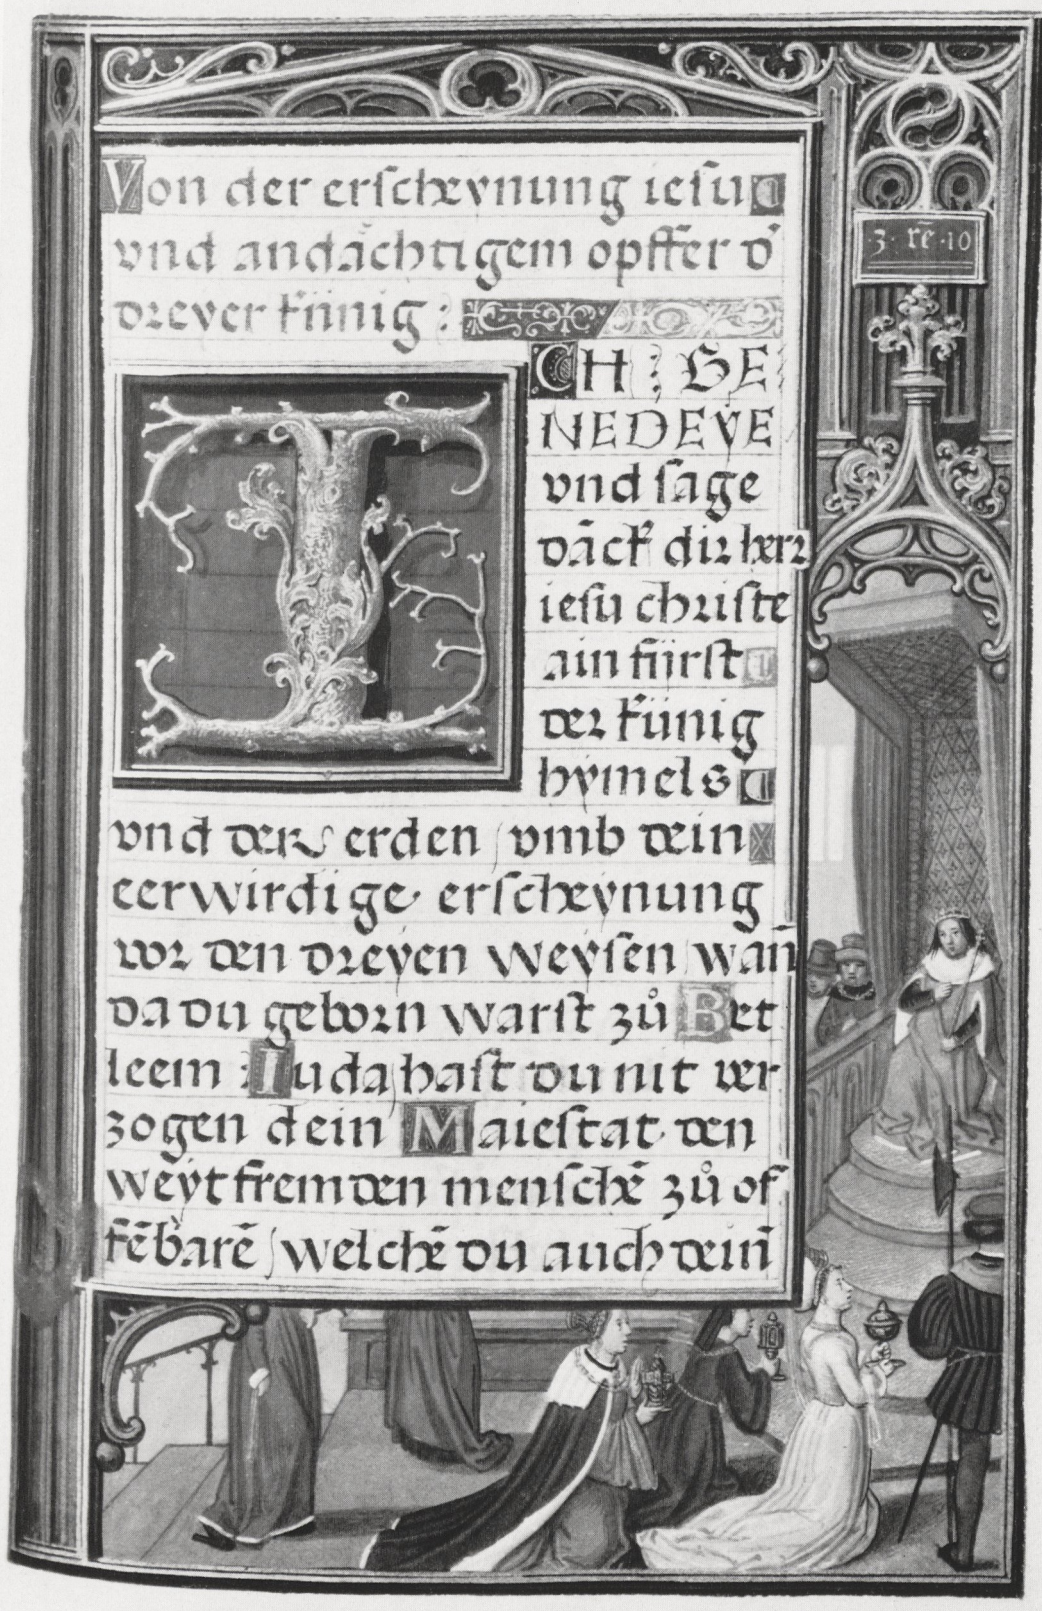 Von der erscheynung iesu
vnd andächtigem opffer d̛
dreyer künig :
ICH : GE
NEDEYE
vnd sage
dāck dir herr
iesu christe
ain fürst
der künig
hymels
vnd der erden / vmb dein
eerwirdige erscheynung
vor den dreyen weysen / wan̄
da du geborn warst zů Bet
leem : Iuda / hast du nit ver
zogen dein Maiestat den
weyt fremden menschē zů of
fēbarē / welchē du auch dein̄
·3· rē ·10